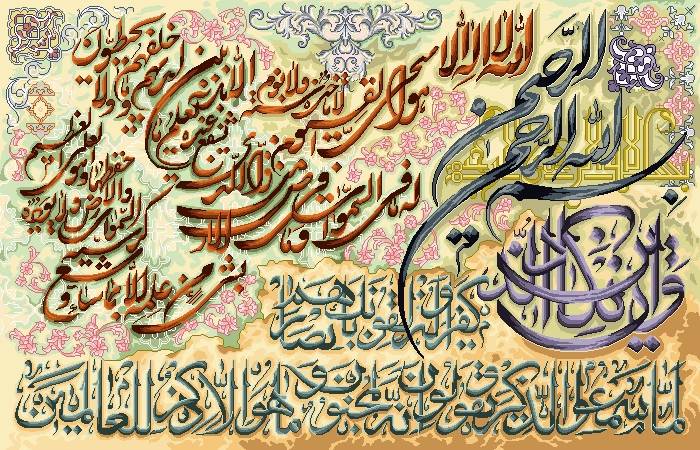 بسم الله الرحمن الرحيم
الله لا اله الا هو الحي القيوم لا تأخذه سنة ولا نوم
له ما في السموات وما في الارض من ذا الذي يشفع عنده الا باذنه يعلم ما بين ايديهم وما خلفهم ولا يحيطون
بشئ من علمه الا بما شاء وسع كرسيه السموات والارض ولا يؤده حفظهما وهو العلي العظيم
وان يكاد الذين
كفروا ليزلقونك بابصارهم
لما سمعوا الذكر ويقولون انه لمجنون وما هو الا ذكر للعالمين